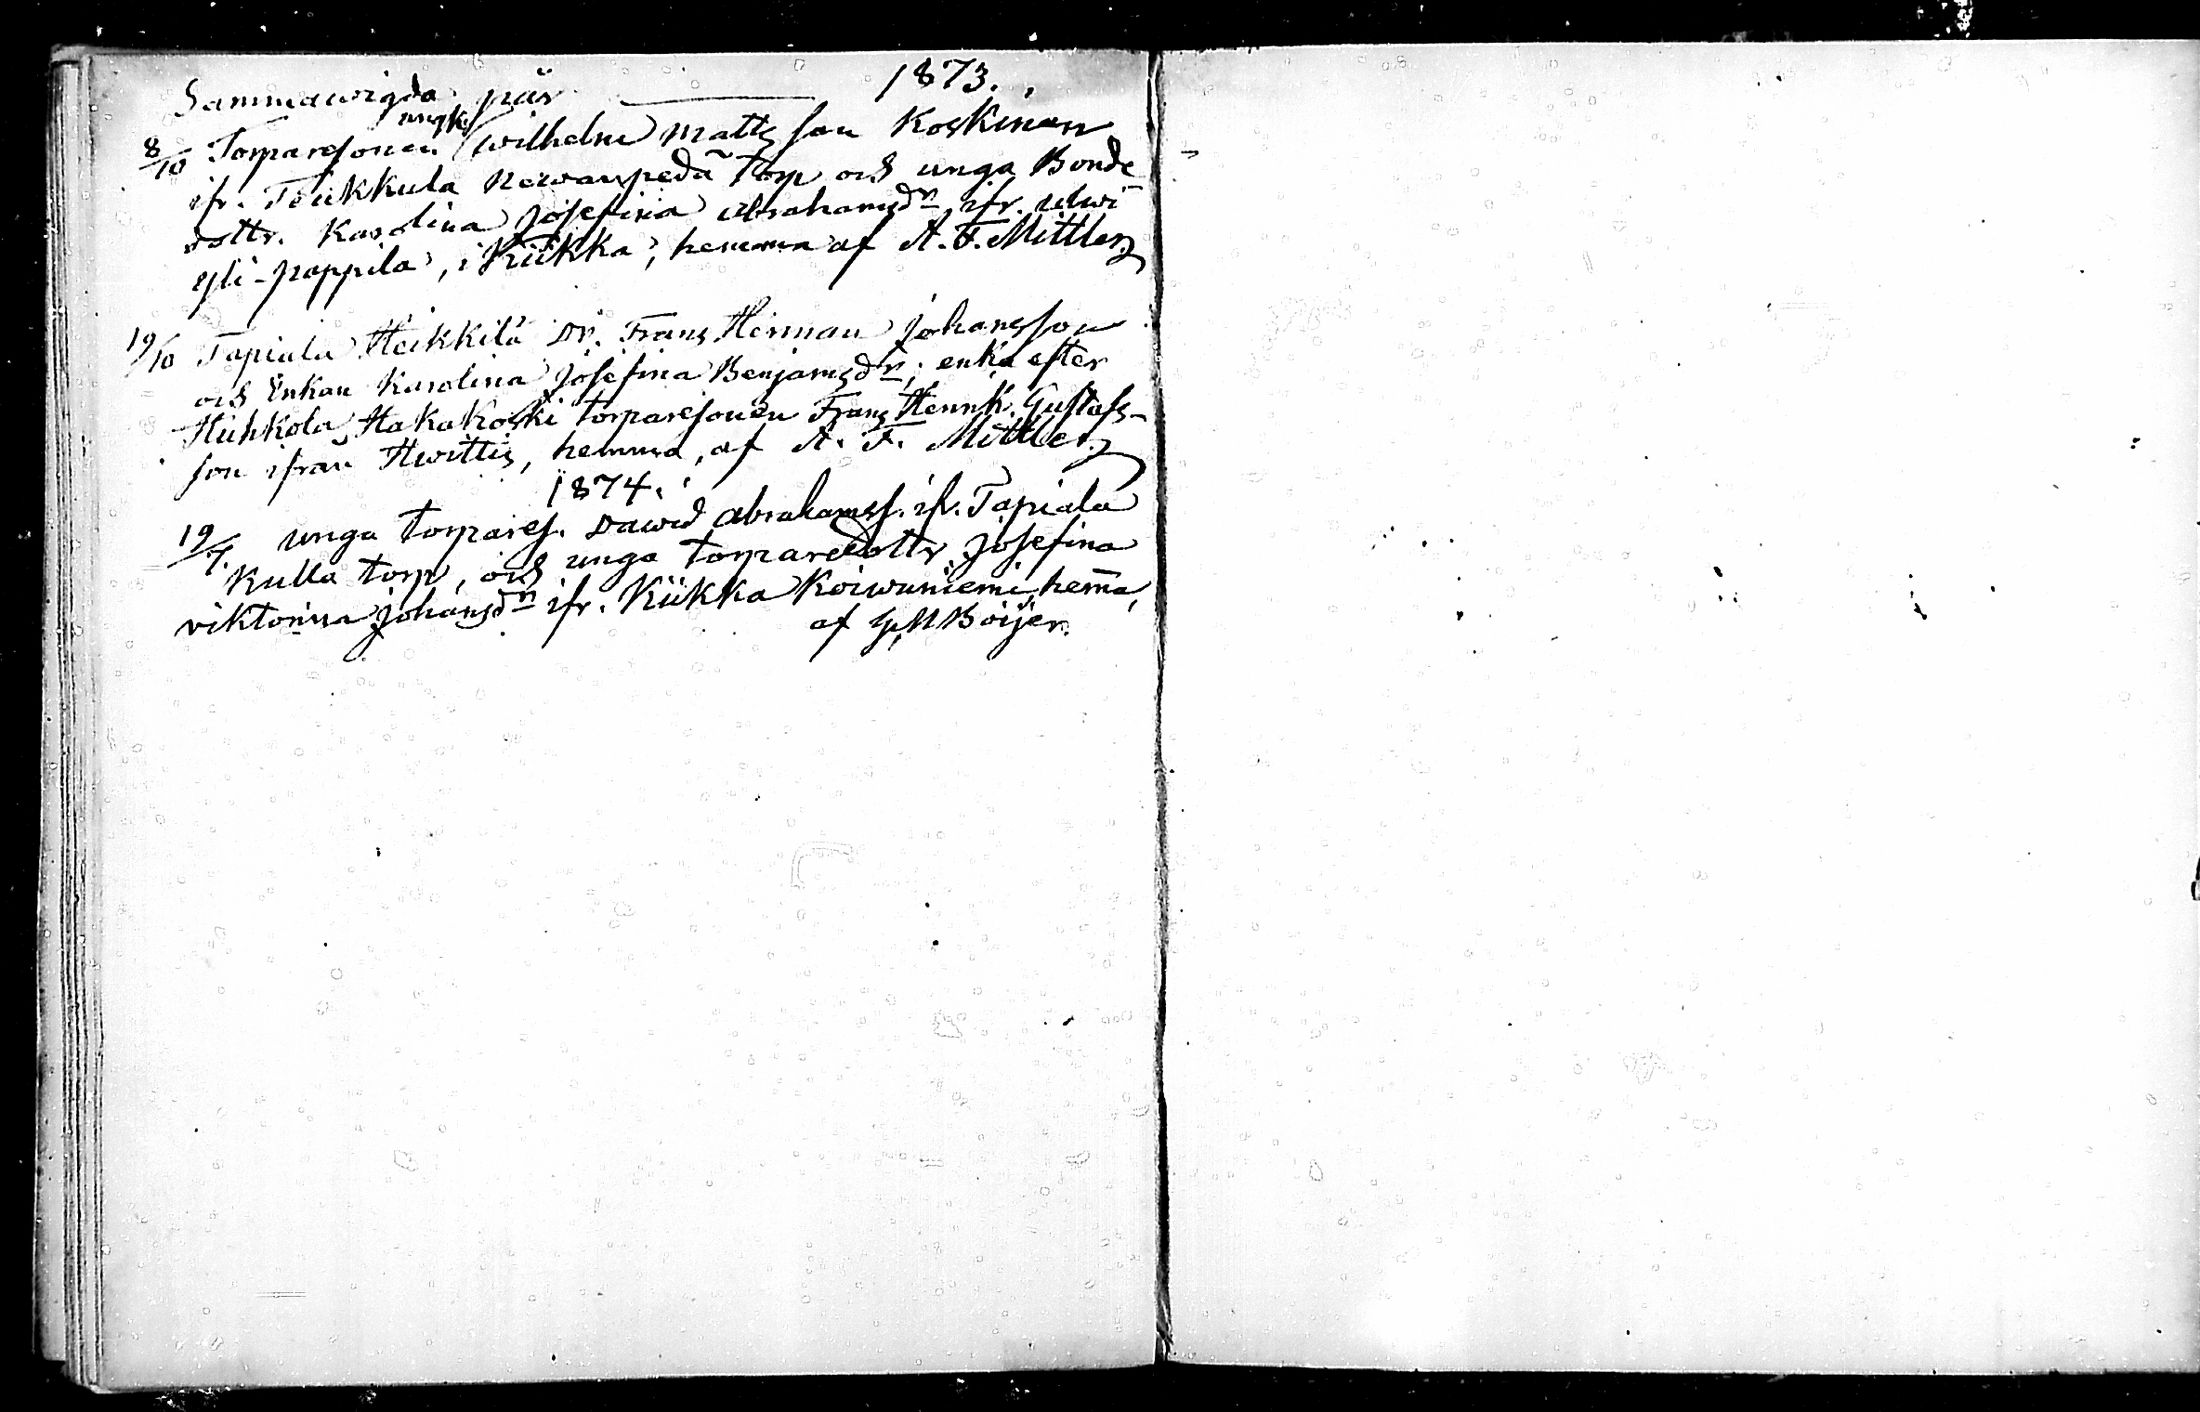 Sammanwigda pär 1873.
8/10 Torparesonen ungk. Wilhelm Mattsson Koskinen
ifr. Teukkula Newanperä Torp och unga Bonde
dottr. Karolina Josefina Abrahamsdr ifr. Ulwi
yli-pappila, i Kiikka; hemma af A. F. Mittler,
19/10 Tapiala Heikkilä Dr. Frans Herman Johansson
och Enkan Karolina Josefina Benjamsdr; enka efter
Huhkola Hakakoski torparesonen Frans Henrik Gustafs-
son ifrån Hwittis, hemma, af A. F. Mittler,
1874.
19/7. unga torpares. Dawid Abrahamss. ifr. Tapiala
Kulla torp, och unga torparedottr Josefina
Viktorina Johansdr ifr. Kiikka Koiwuniemi hema,
af G M Boijer.